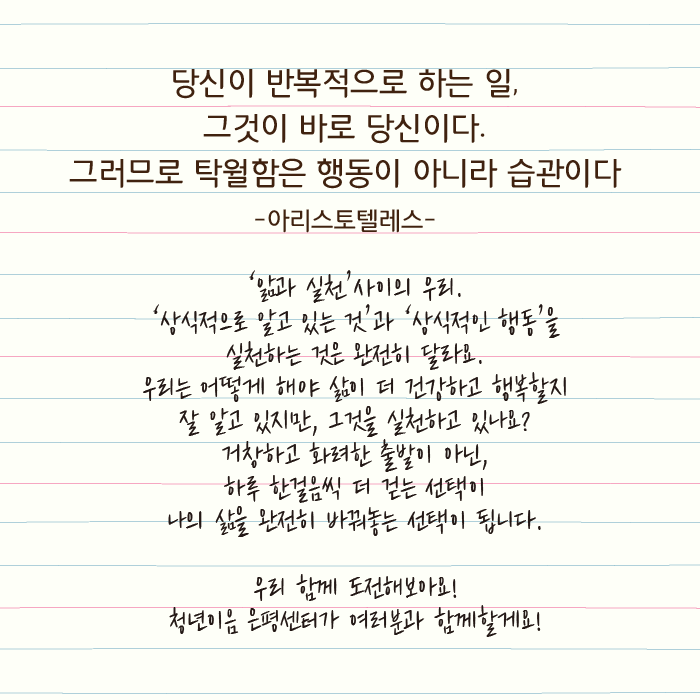 당신이 반복적으로 하는 일,
그것이 바로 당신이다.
그러므로 탁월함은 행동이 아니라 습관이다
-아리스토텔레스-
‘앎과 실천’사이의 우리.
‘상식적으로 알고 있는 것’과 ‘상식적인 행동’을
실천하는 것은 완전히 달라요.
우리는 어떻게 해야 삶이 더 건강하고 행복할지
잘 알고 있지만, 그것을 실천하고 있나요?
거창하고 화려한 출발이 아닌,
하루 한걸음씩 더 걷는 선택이
나의 삶을 완전히 바꿔놓는 선택이 됩니다.
우리 함께 도전해보아요!
청년이음 은평센터가 여러분과 함께할게요!